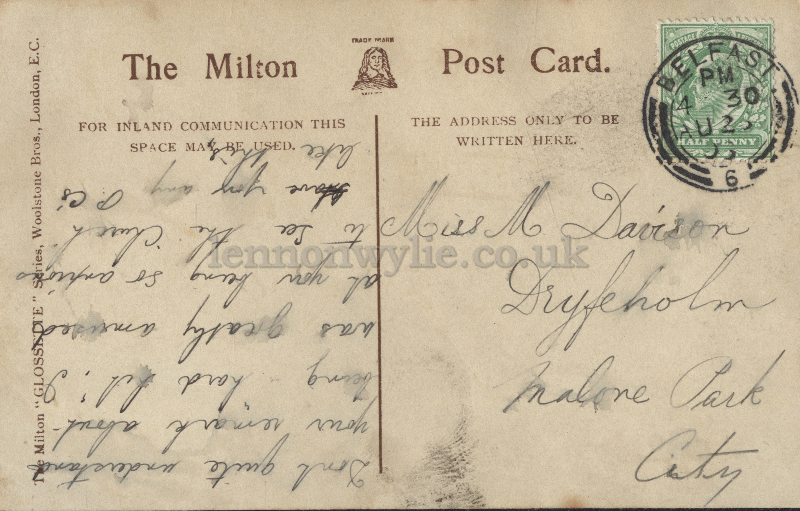 The Milton
TRADE MARK
Post Card.
FOR INLAND COMMUNICATION THIS
SPACE MAY BE USED.
THE ADDRESS ONLY TO BE
WRITTEN HERE.
The Milton "GLOSSETTE" Series, Woolstone Bros., London, E.C.
BELFAST
PM
4 30
AU 23
6
HALF PENNY
Miss M Davison
Dryfeholm
Malone Park
City
Dont quite understand
your remark about
being - hard hit! I
was greatly amused
at you being so anxious
to see the Church
Have you any P.C's
like this
lennonwylie.co.uk